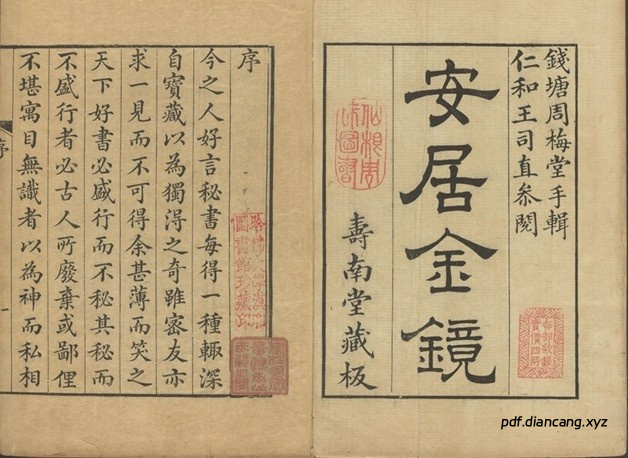 錢塘周梅堂手輯
仁和王司直叅閱
安居金鏡
壽南堂藏板
每部紋銀
實價四錢
序
今之人好言秘書每得一種輙深
自寶藏以為獨淂之奇雖宻友亦
求一見而不可得余甚薄而笑之
天下好書必盛行而不秘其秘而
不盛行者必古人所廢棄或鄙俚
不堪寓目無識者以為神而私相
序
哈佛大學漢和
圖書館珍藏印
pdf.diancang.xyz